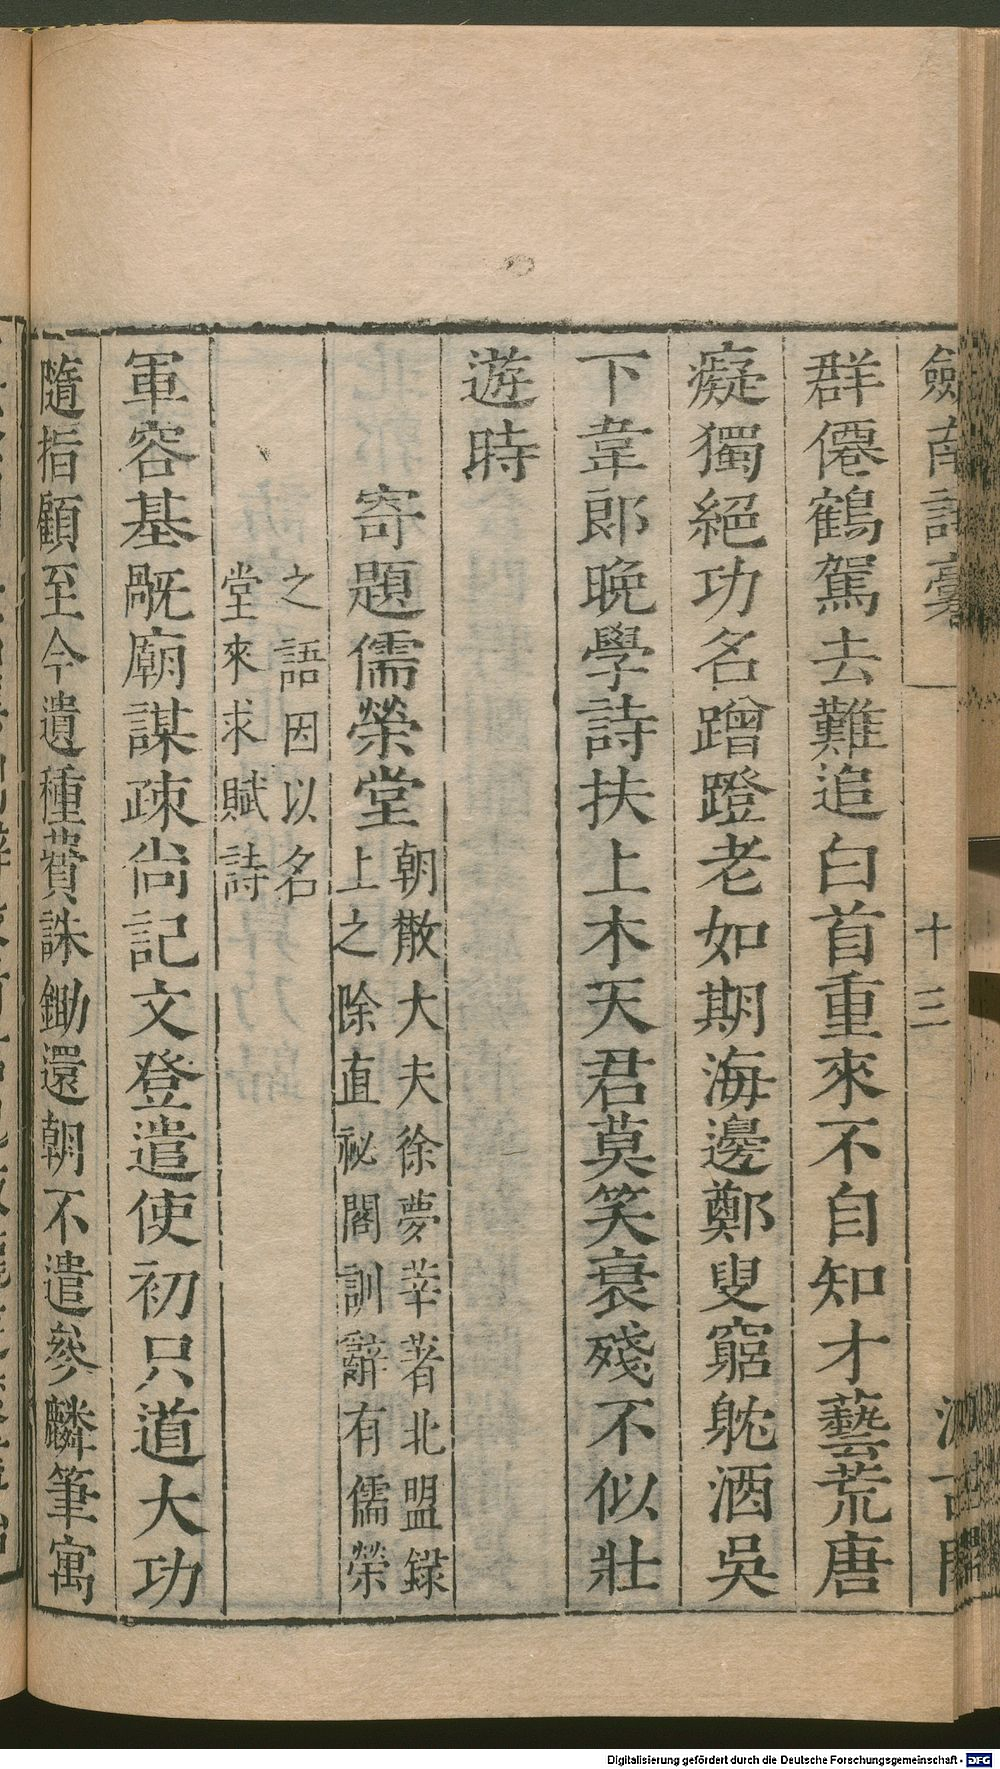 劔南詩藁
十三
群僊鶴駕去難追白首重來不自知才藝荒唐
癡獨絕功名蹭蹬老如期海邊鄭叟窮躭酒吳
下韋郎晚學詩扶上木天君莫笑衰殘不似壯
遊時
寄題儒榮堂
朝散大夫徐夢莘著北盟錄
上之除直祕閣訓辭有儒榮
之語因以名
堂來求賦詩
軍容基厩廟謀疎尙記文登遣使初只道大功
隨指顧至今遺種費誅鋤還朝不遣參麟筆寓
Digitalisierung gefördert durch die Deutsche Forschungsgemeinschaft - DFG